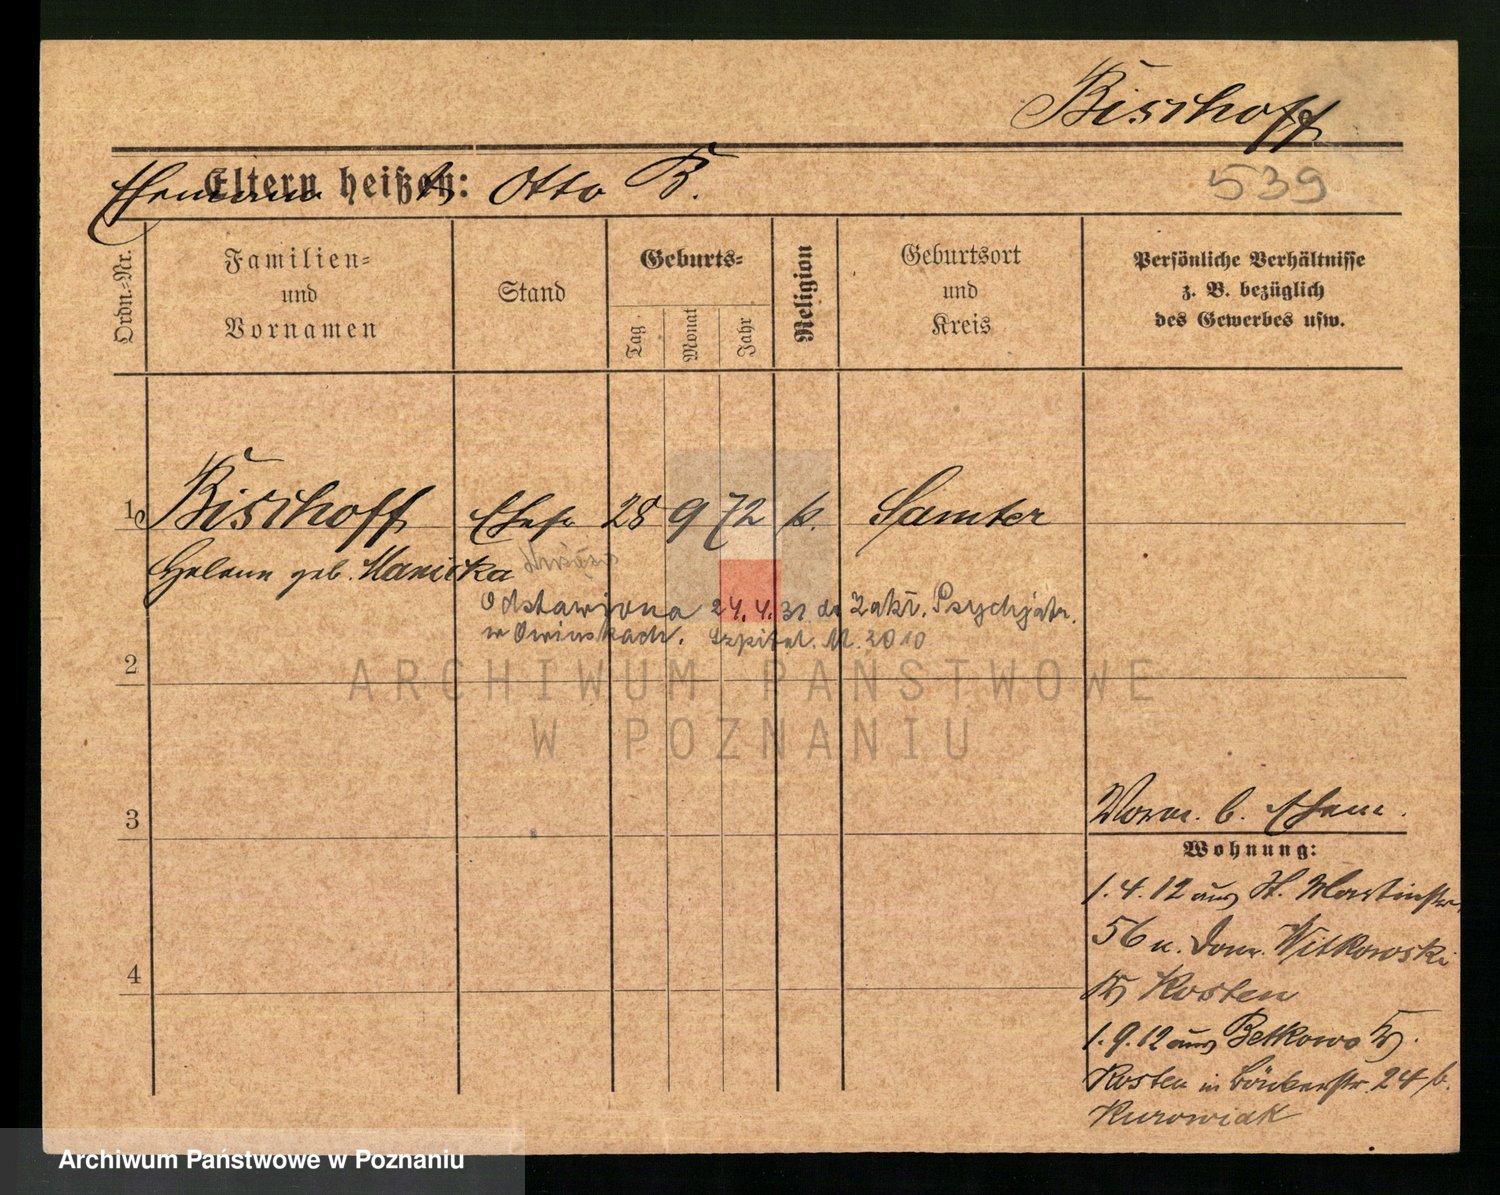 Bischoff
Eltern heißen:
Ehemann Otto B.
539
Ordn.-Nr.
Familien-
und
Vornamen
Stand
Geburts-
Tag
Monat
Jahr
Religion
Geburtsort
und
Kreis
Persönliche Verhältnisse
z. B. bezüglich
des Gewerbes usw.
1 Bischoff Ehefr 28 9 72 k. Samter
Helene geb. Manicka
Odstawiona 24.4.31 do Zakł. Psychjatr.
w Owinskach. Szpital. M. 3010
2
ARCHIWUM PAŃSTWOWE
W POZNANIU
3
Verm. b. Ehem.
Wohnung:
1.4.12 aus St. Martinstr.
56 n. Dom. Witkowski
Kr Kosten
4
1.9.12 aus Betkowo Kr.
Kosten in Bäckerstr. 24 b.
Kurowiak
Archiwum Państwowe w Poznaniu